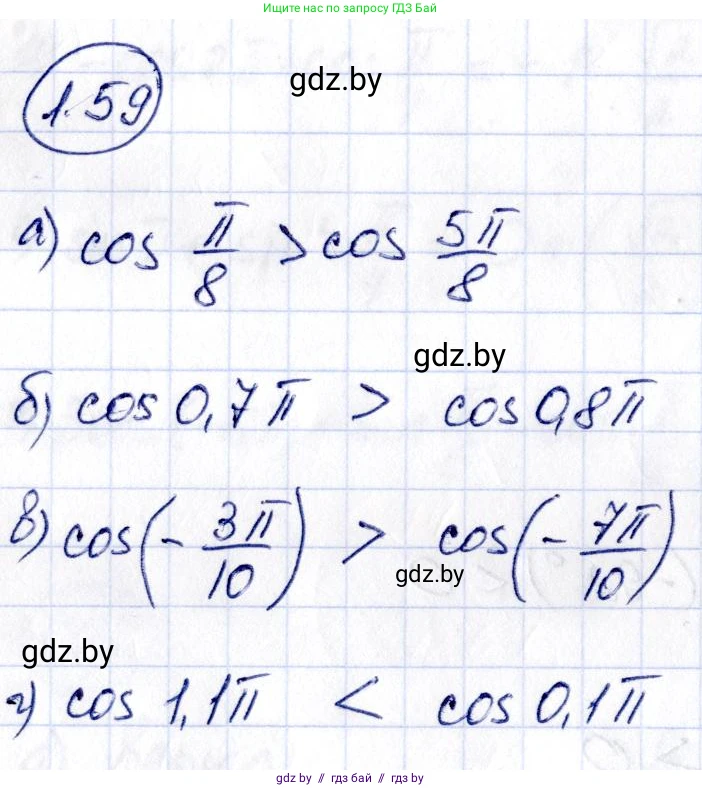 Ищите нас по запросу ГДЗ Бай
1.59
gdz.by
а) cos π/8 > cos 5π/8
gdz.by
б) cos 0,7π > cos 0,8π
в) cos(-3π/10) > cos(-7π/10)
gdz.by
gdz.by
г) cos 1,1π < cos 0,1π
gdz.by // гдз бай // gdz.by